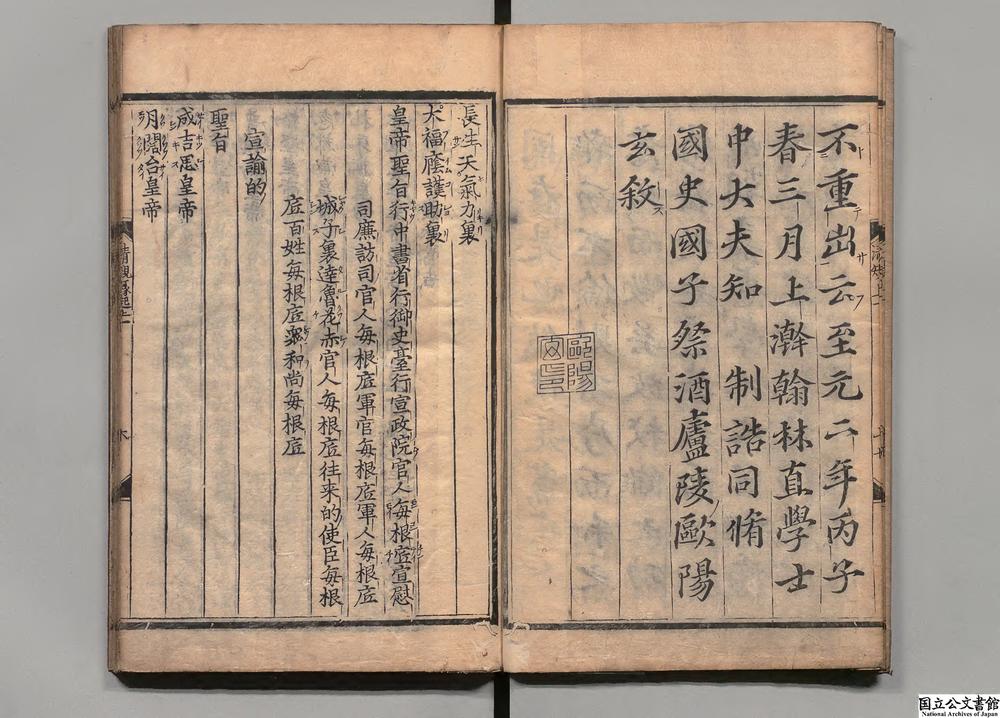 不重出云至元二年丙子
春三月上澣翰林直學士
中大夫知 制誥同脩
國史國子祭酒廬陵歐陽
玄敘
歐陽
玄印
長生天氣力裏
大福廕護助裏
皇帝聖旨行中書省行御史臺行宣政院官人每根底宣慰
司廉訪司官人每根底軍官每根底軍人每根底
城子裏達魯花赤官人每根底往来的使臣每根
底百姓每根底衆和尚每根底
宣諭的
聖旨
成吉思皇帝
月闊台皇帝
国立公文書館
National Archives of Japan